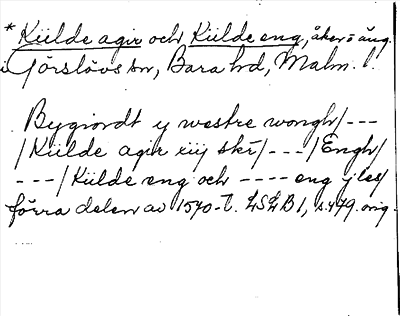 * Kiilde agir och Kiilde eng, åker o äng.
i Görslövs sn, Bara hd, Malm. l.
Bygiordt y westre wongh/---
/Kiilde agir xiij skr/---/Engh/
---/Kiilde eng och ---- eng j les/
förra delen av 1540-t. LSLB 1, s. 479. orig.